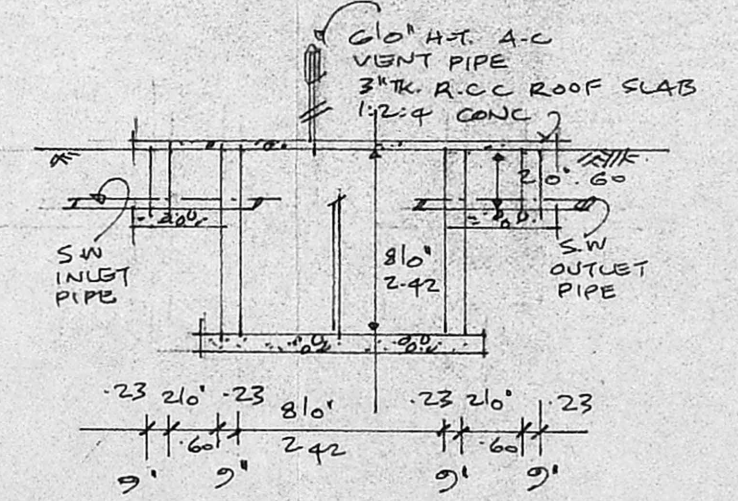 6'0" H.T. A-C
VENT PIPE
3"TK. R.C.C ROOF SLAB
1:2:4 CONC
2'0" .60
S.W
INLET
PIPE
8'0"
2.42
S.W
OUTLET
PIPE
.23 2'0" .23 8'0" .23 2'0" .23
.60 2.42 .60
9" 9" 9" 9"